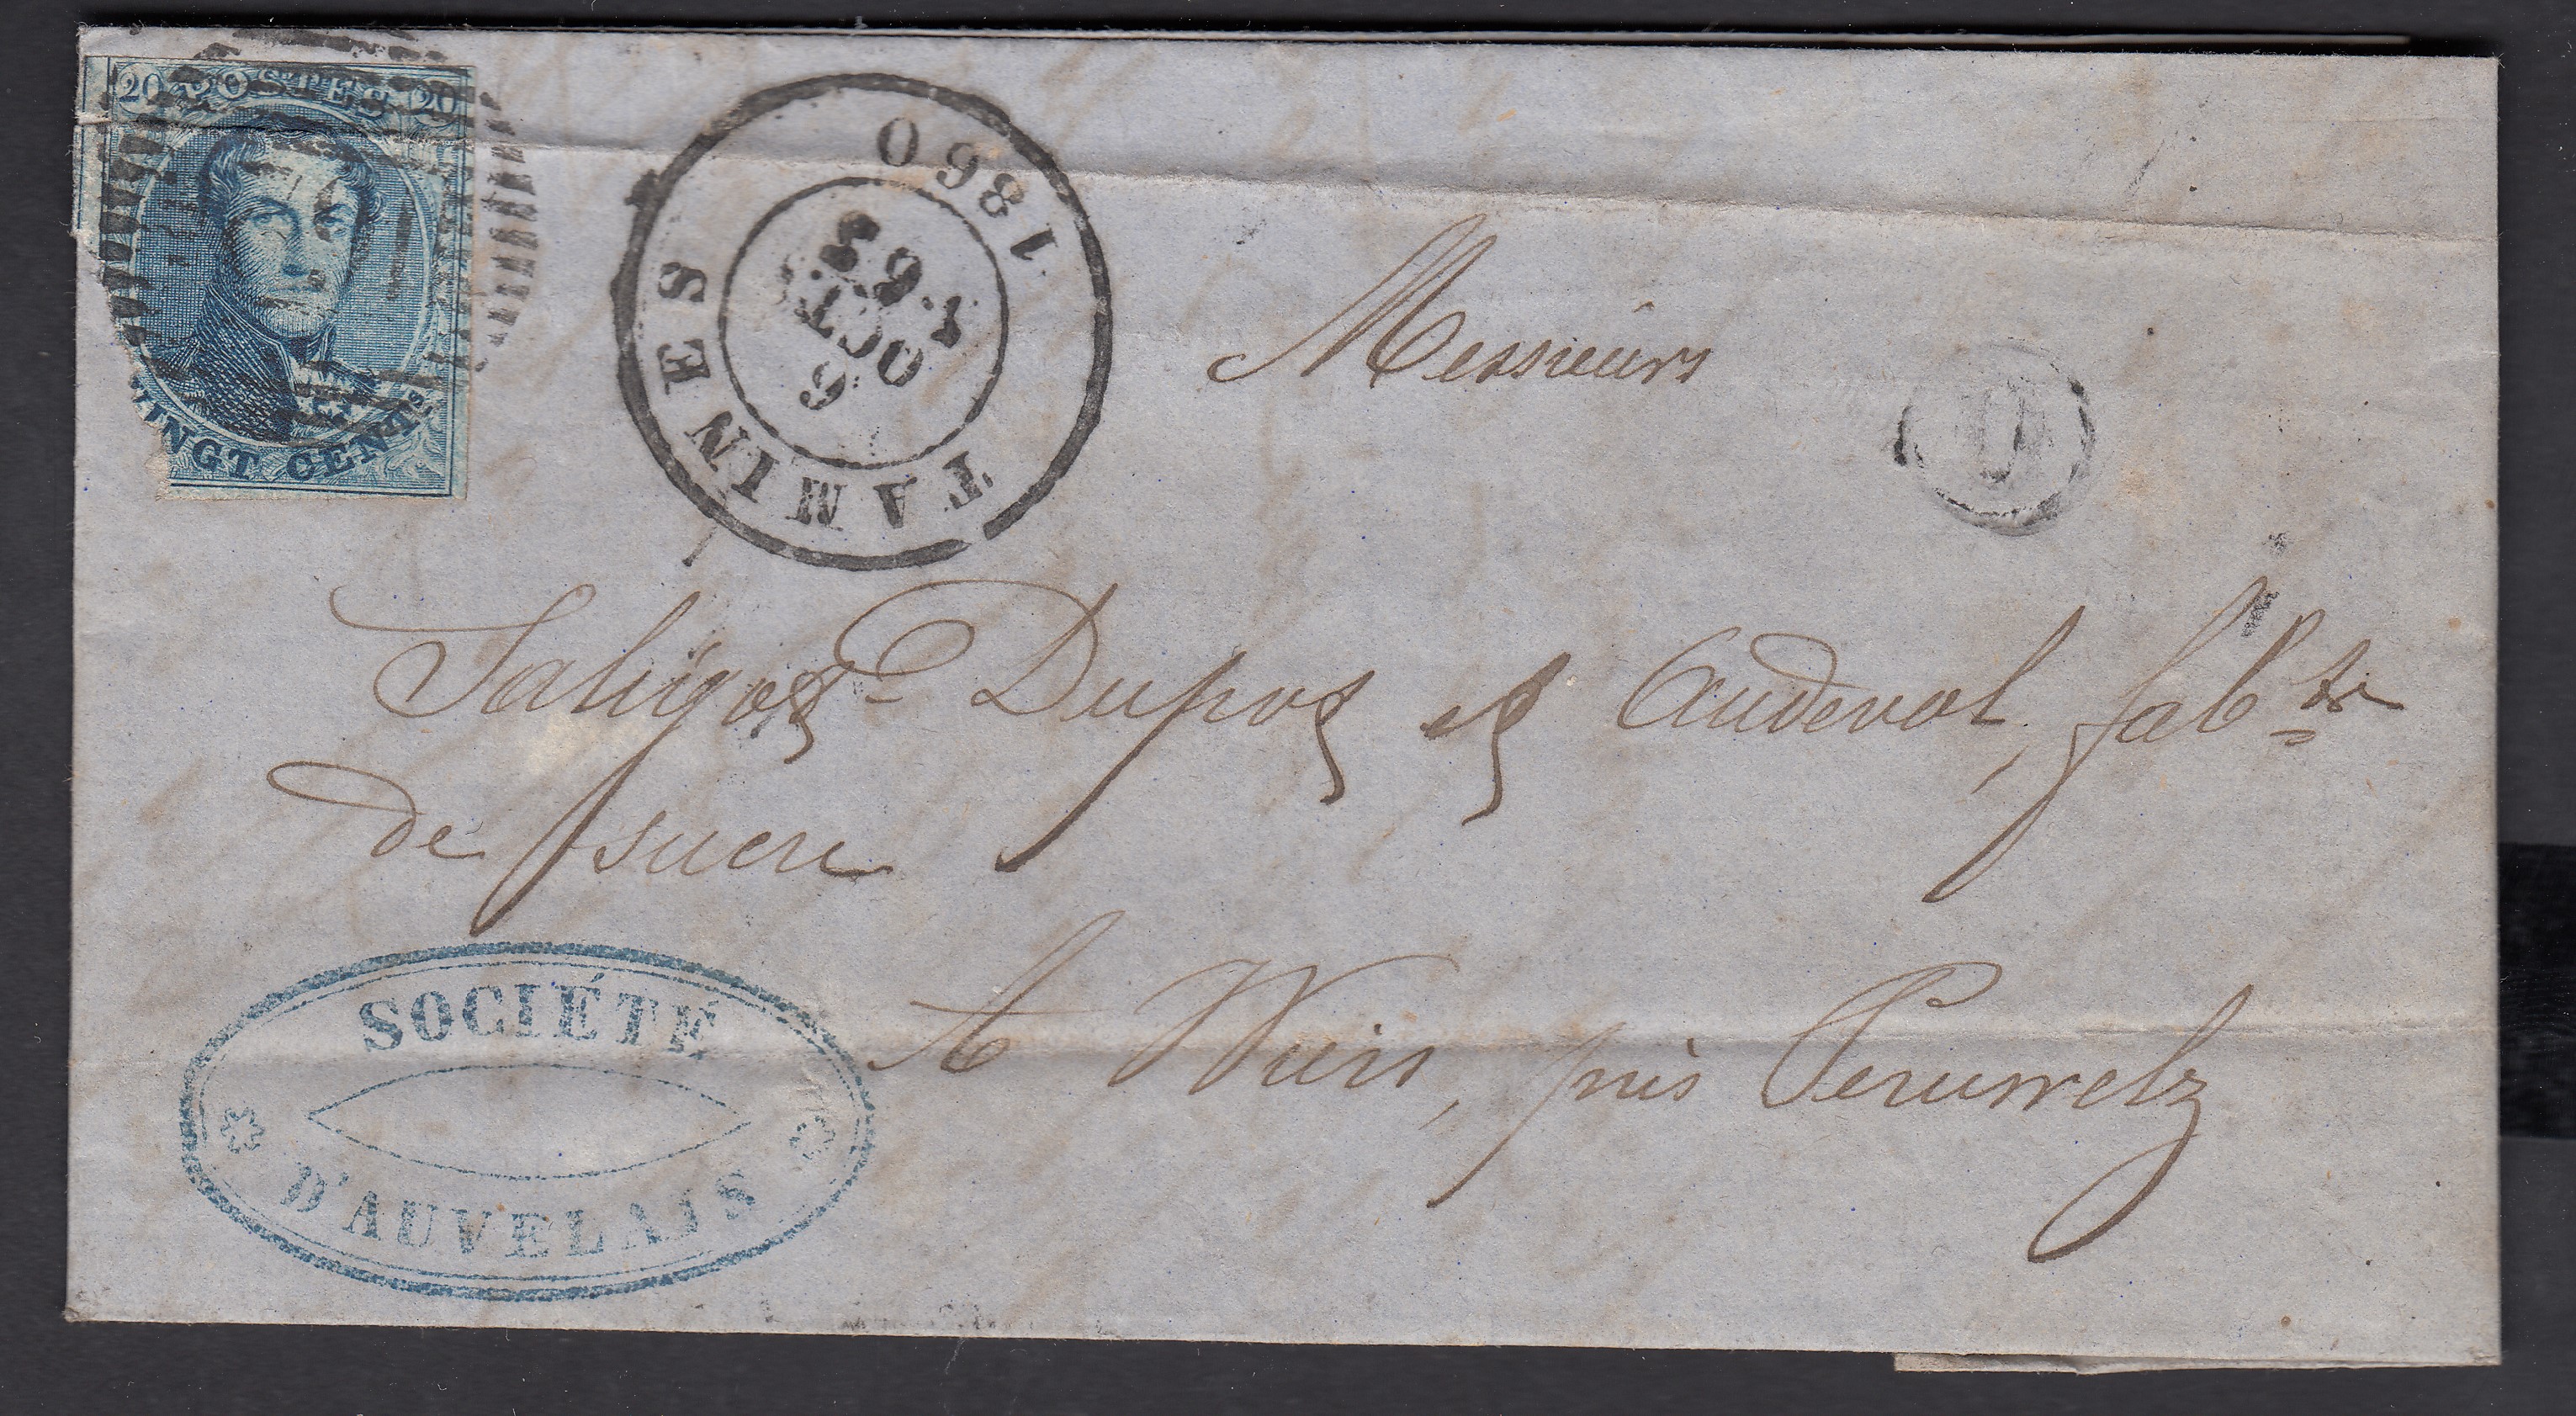 20 POSTES 20
VINGT CENTS
TAMINES 1860
6 OCT
Messieurs
Saligot Dupos et Audeval, fab.ts
de sucre
A Wiers, près Peruwelz
SOCIÉTÉ
D'AUVELAIS